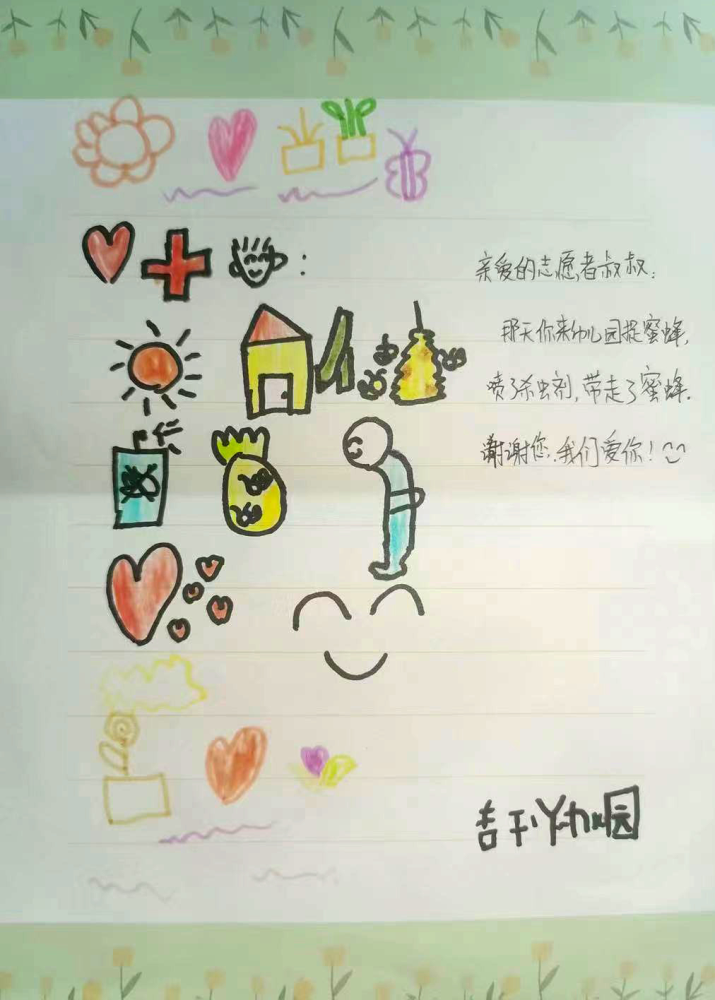 亲爱的志愿者叔叔:
那天你来幼儿园捉蜜蜂,
喷了杀虫剂,带走了蜜蜂.
谢谢您.我们爱你!
幼儿园